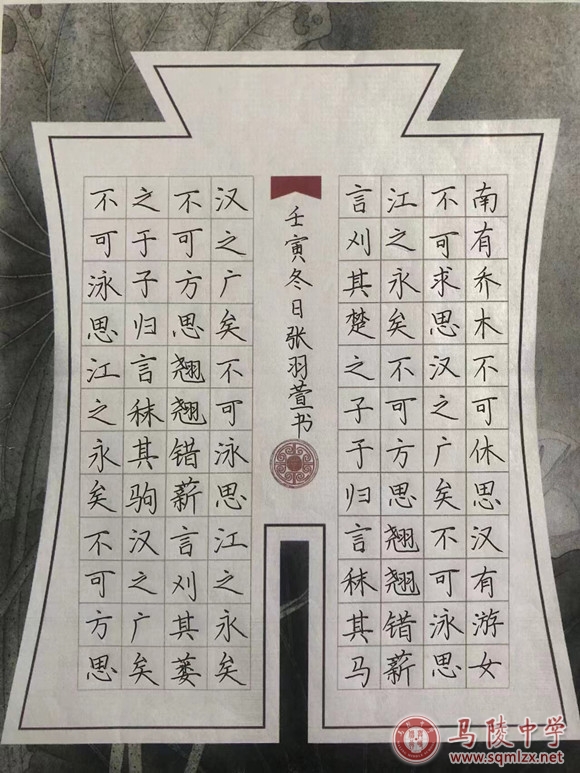 南有乔木不可休思汉有游女
不可求思汉之广矣不可泳思
江之永矣不可方思翘翘错薪
言刈其楚之子于归言秣其马
汉之广矣不可泳思江之永矣
不可方思翘翘错薪言刈其蒌
之于子归言秣其驹汉之广矣
不可泳思江之永矣不可方思
壬寅冬日张羽萱书
马陵中学
www.sqmlzx.net